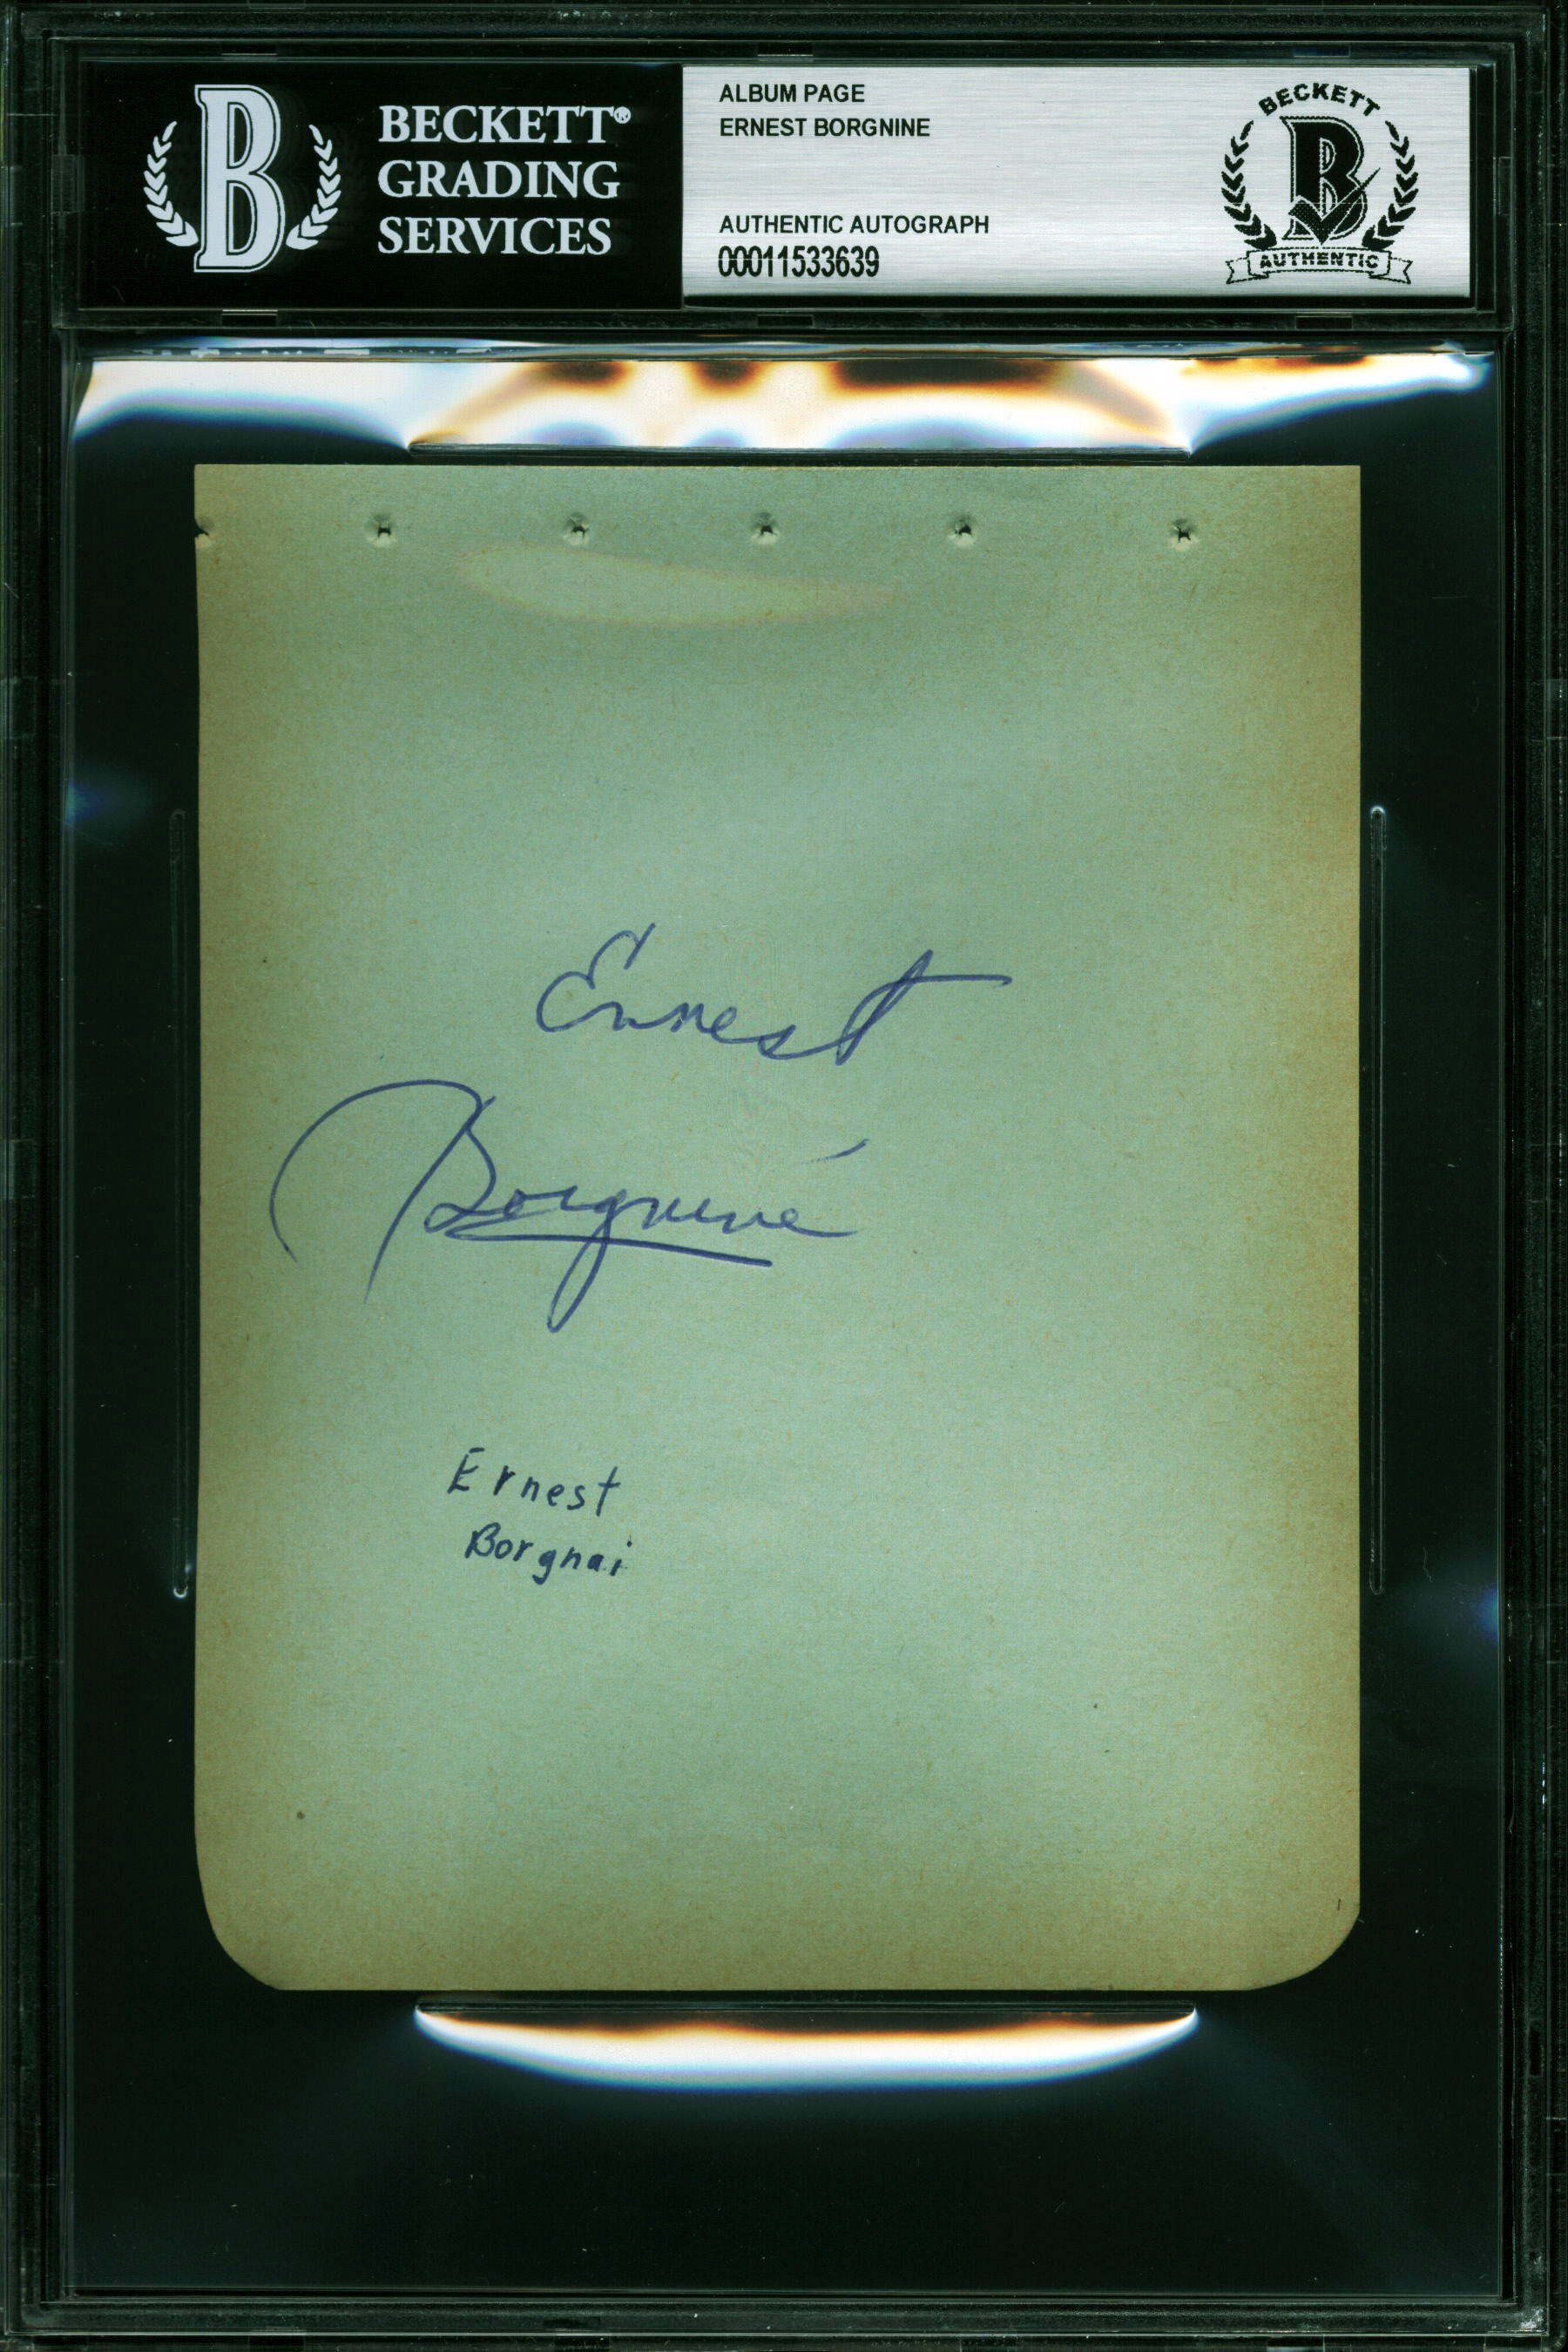 BECKETT®
GRADING
SERVICES
ALBUM PAGE
ERNEST BORGNINE
AUTHENTIC AUTOGRAPH
00011533639
BECKETT
B
AUTHENTIC
B
Ernest
Borgnine
Ernest
Borgnai